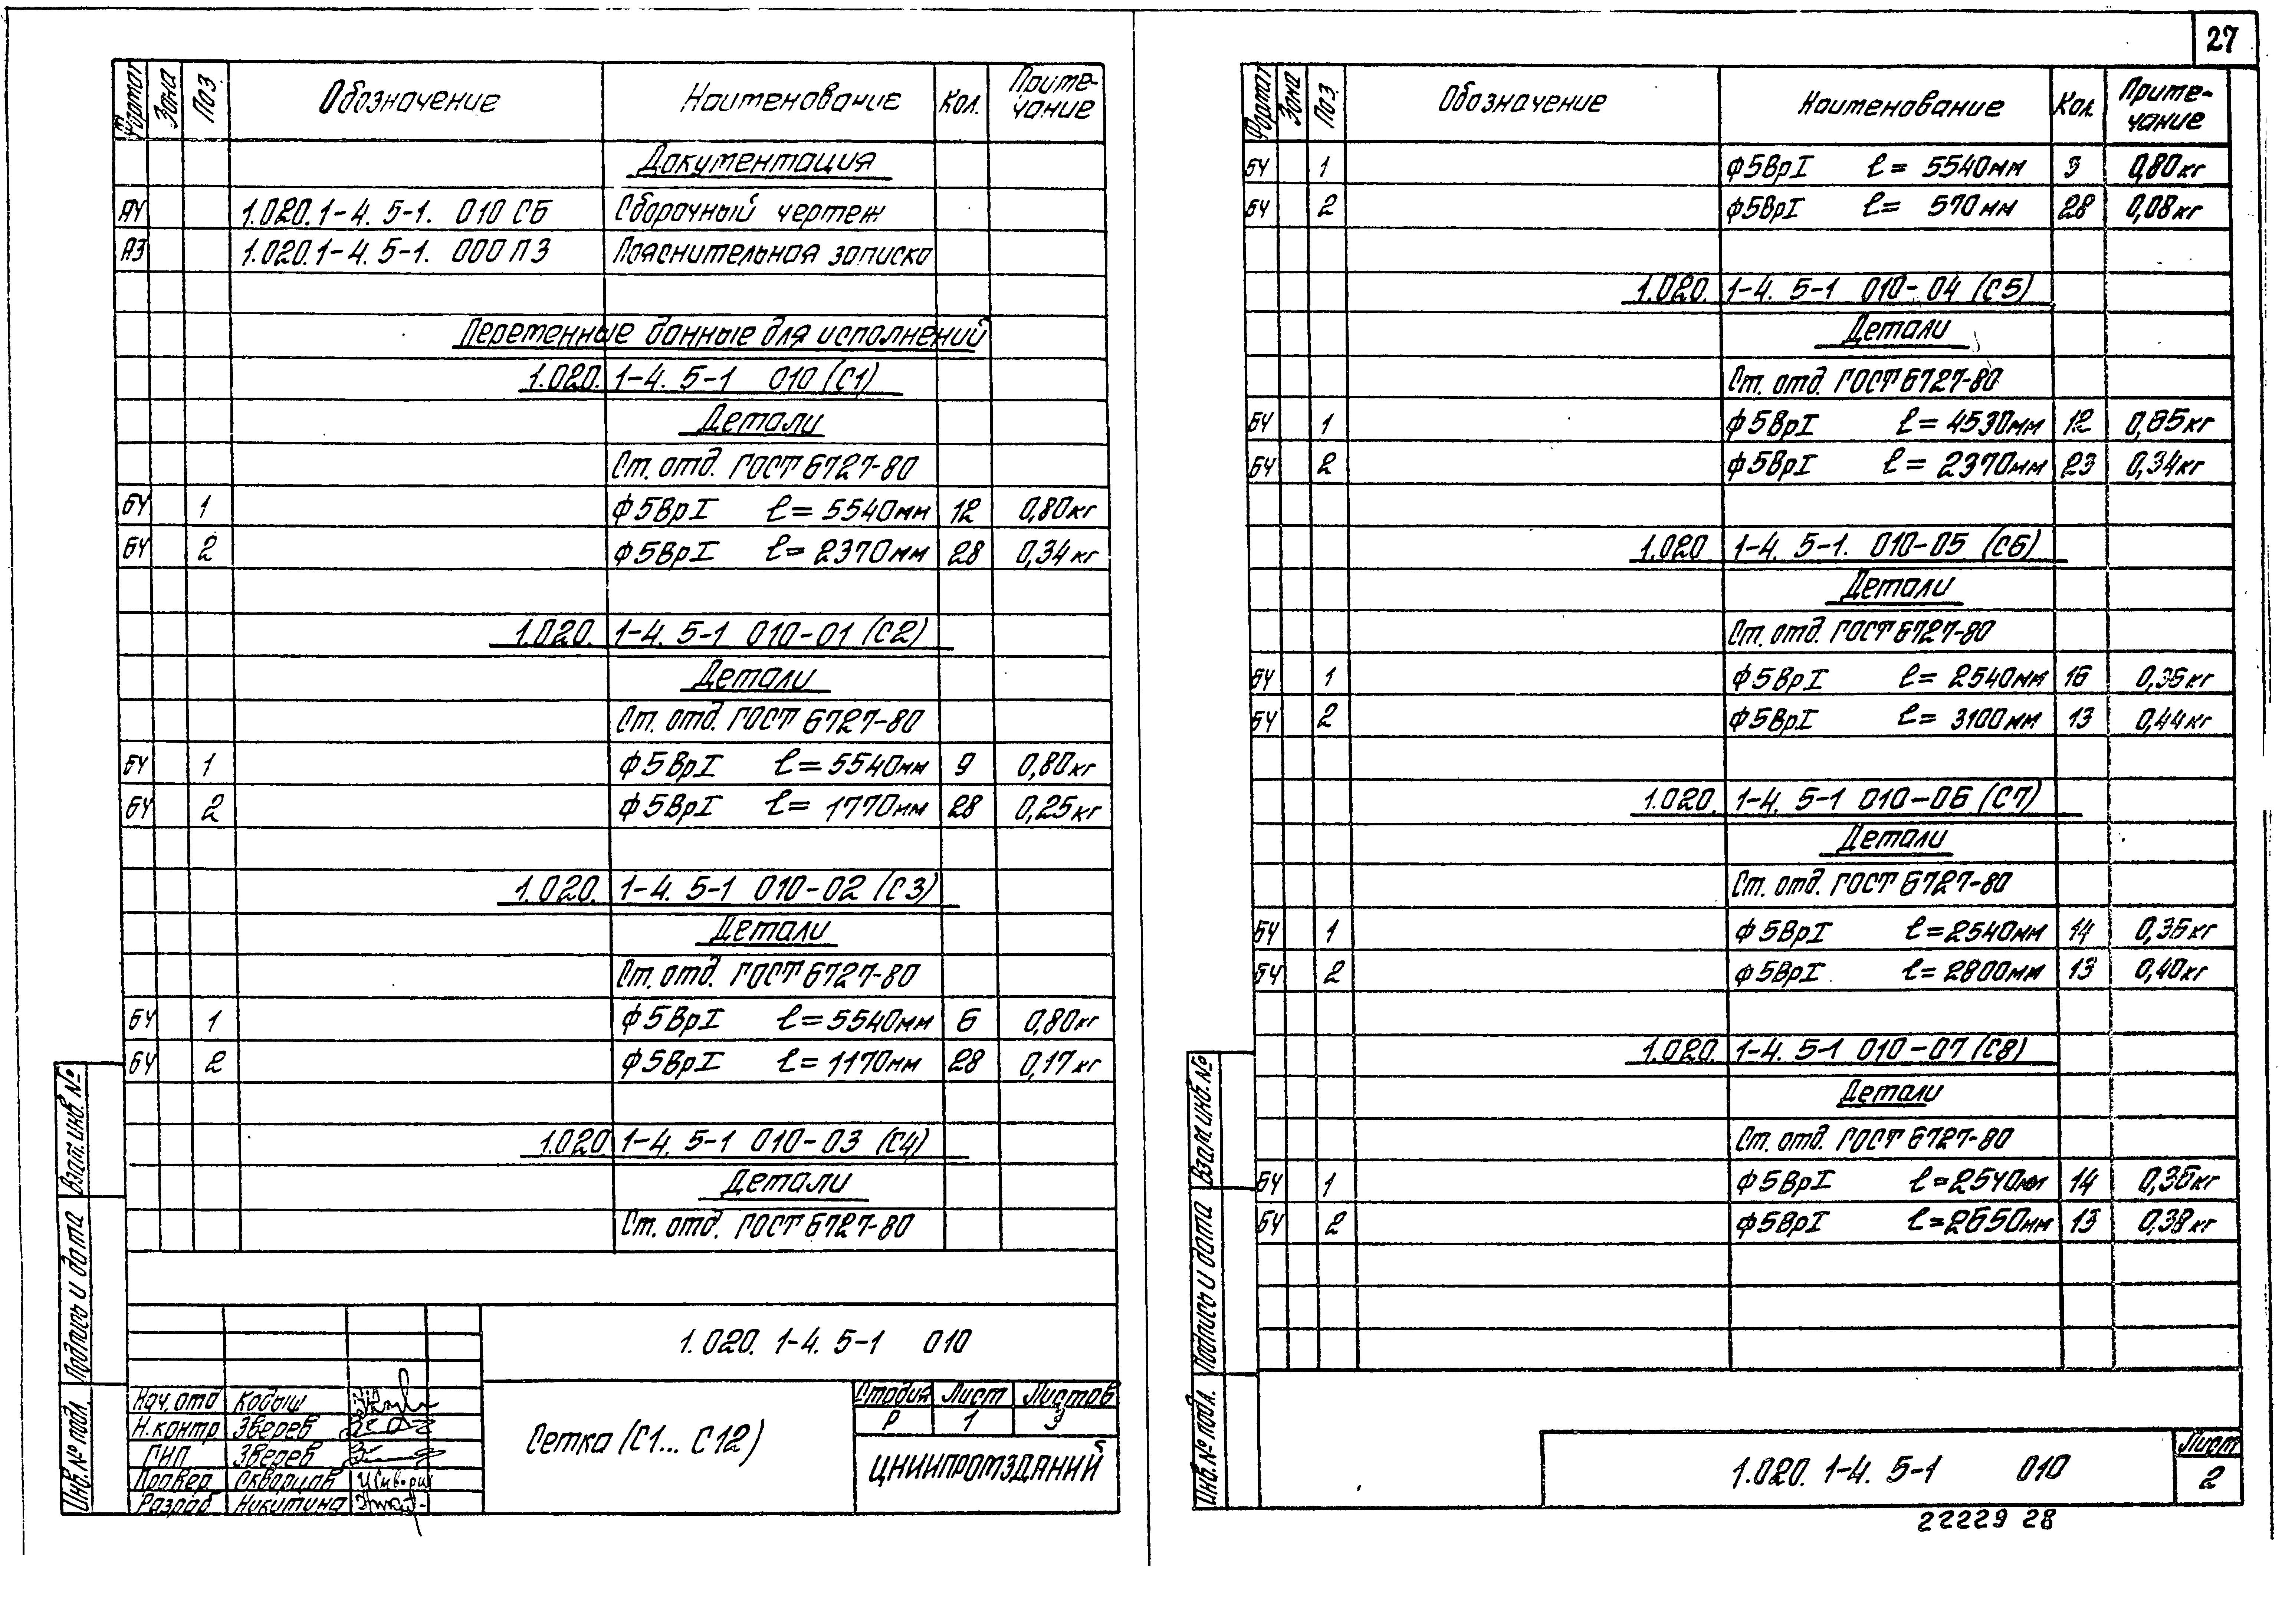 27
Формат Зона Поз. Обозначение Наименование Кол. Приме-чание
Документация
А4 1.020.1-4. 5-1. 010 СБ Сборочный чертеж
А3 1.020.1-4. 5-1. 000 ПЗ Пояснительная записка
Переменные данные для исполнений
1.020. 1-4. 5-1 010 (С1)
Детали
Ст. отд. ГОСТ 6727-80
БЧ 1 ф5ВрI ℓ= 5540мм 12 0,80кг
БЧ 2 ф5ВрI ℓ= 2370мм 28 0,34кг
1.020. 1-4. 5-1 010-01 (С2)
Детали
Ст. отд. ГОСТ 6727-80
БЧ 1 ф5ВрI ℓ=5540мм 9 0,80кг
БЧ 2 ф5ВрI ℓ= 1770мм 28 0,25кг
1.020. 1-4. 5-1 010-02 (С3)
Детали
Ст. отд. ГОСТ 6727-80
БЧ 1 ф5ВрI ℓ=5540мм 6 0,80кг
БЧ 2 ф5ВрI ℓ=1170мм 28 0,17кг
1.020 1-4. 5-1 010-03 (С4)
Детали
Ст. отд. ГОСТ 6727-80
1.020. 1-4. 5-1 010
Нач.отд Кодыш
Н.контр Зверев
ГИП Зверев
Провер. Скворцов
Разраб Никитина
Сетка (С1... С12)
Стадия Лист Листов
Р 1 3
ЦНИИПРОМЗДАНИЙ
Взам. инв. №
Подпись и дата
Инв.№ подл.
Формат Зона Поз. Обозначение Наименование Кол. Приме-чание
БЧ 1 ф5ВрI ℓ= 5540мм 3 0,80кг
БЧ 2 ф5ВрI ℓ= 570мм 28 0,08кг
1.020. 1-4. 5-1 010-04 (С5)
Детали
Ст. отд. ГОСТ 6727-80
БЧ 1 ф5ВрI ℓ= 4530мм 12 0,65кг
БЧ 2 ф5ВрI ℓ= 2370мм 23 0,34кг
1.020 1-4. 5-1. 010-05 (С6)
Детали
Ст. отд. ГОСТ 6727-80
БЧ 1 ф5ВрI ℓ= 2540мм 16 0,36кг
БЧ 2 ф5ВрI ℓ= 3100мм 13 0,44кг
1.020. 1-4. 5-1 010-06 (С7)
Детали
Ст. отд. ГОСТ 6727-80
БЧ 1 ф5ВрI ℓ=2540мм 14 0,36кг
БЧ 2 ф5ВрI ℓ=2800мм 13 0,40кг
1.020. 1-4. 5-1 010-07 (С8)
Детали
Ст. отд. ГОСТ 6727-80
БЧ 1 ф5ВрI ℓ=2540мм 14 0,36кг
БЧ 2 ф5ВрI ℓ=2650мм 13 0,38кг
Взам.инв.№
Подпись и дата
Инв.№ подл.
1.020. 1-4. 5-1 010
Лист
2
22229 28